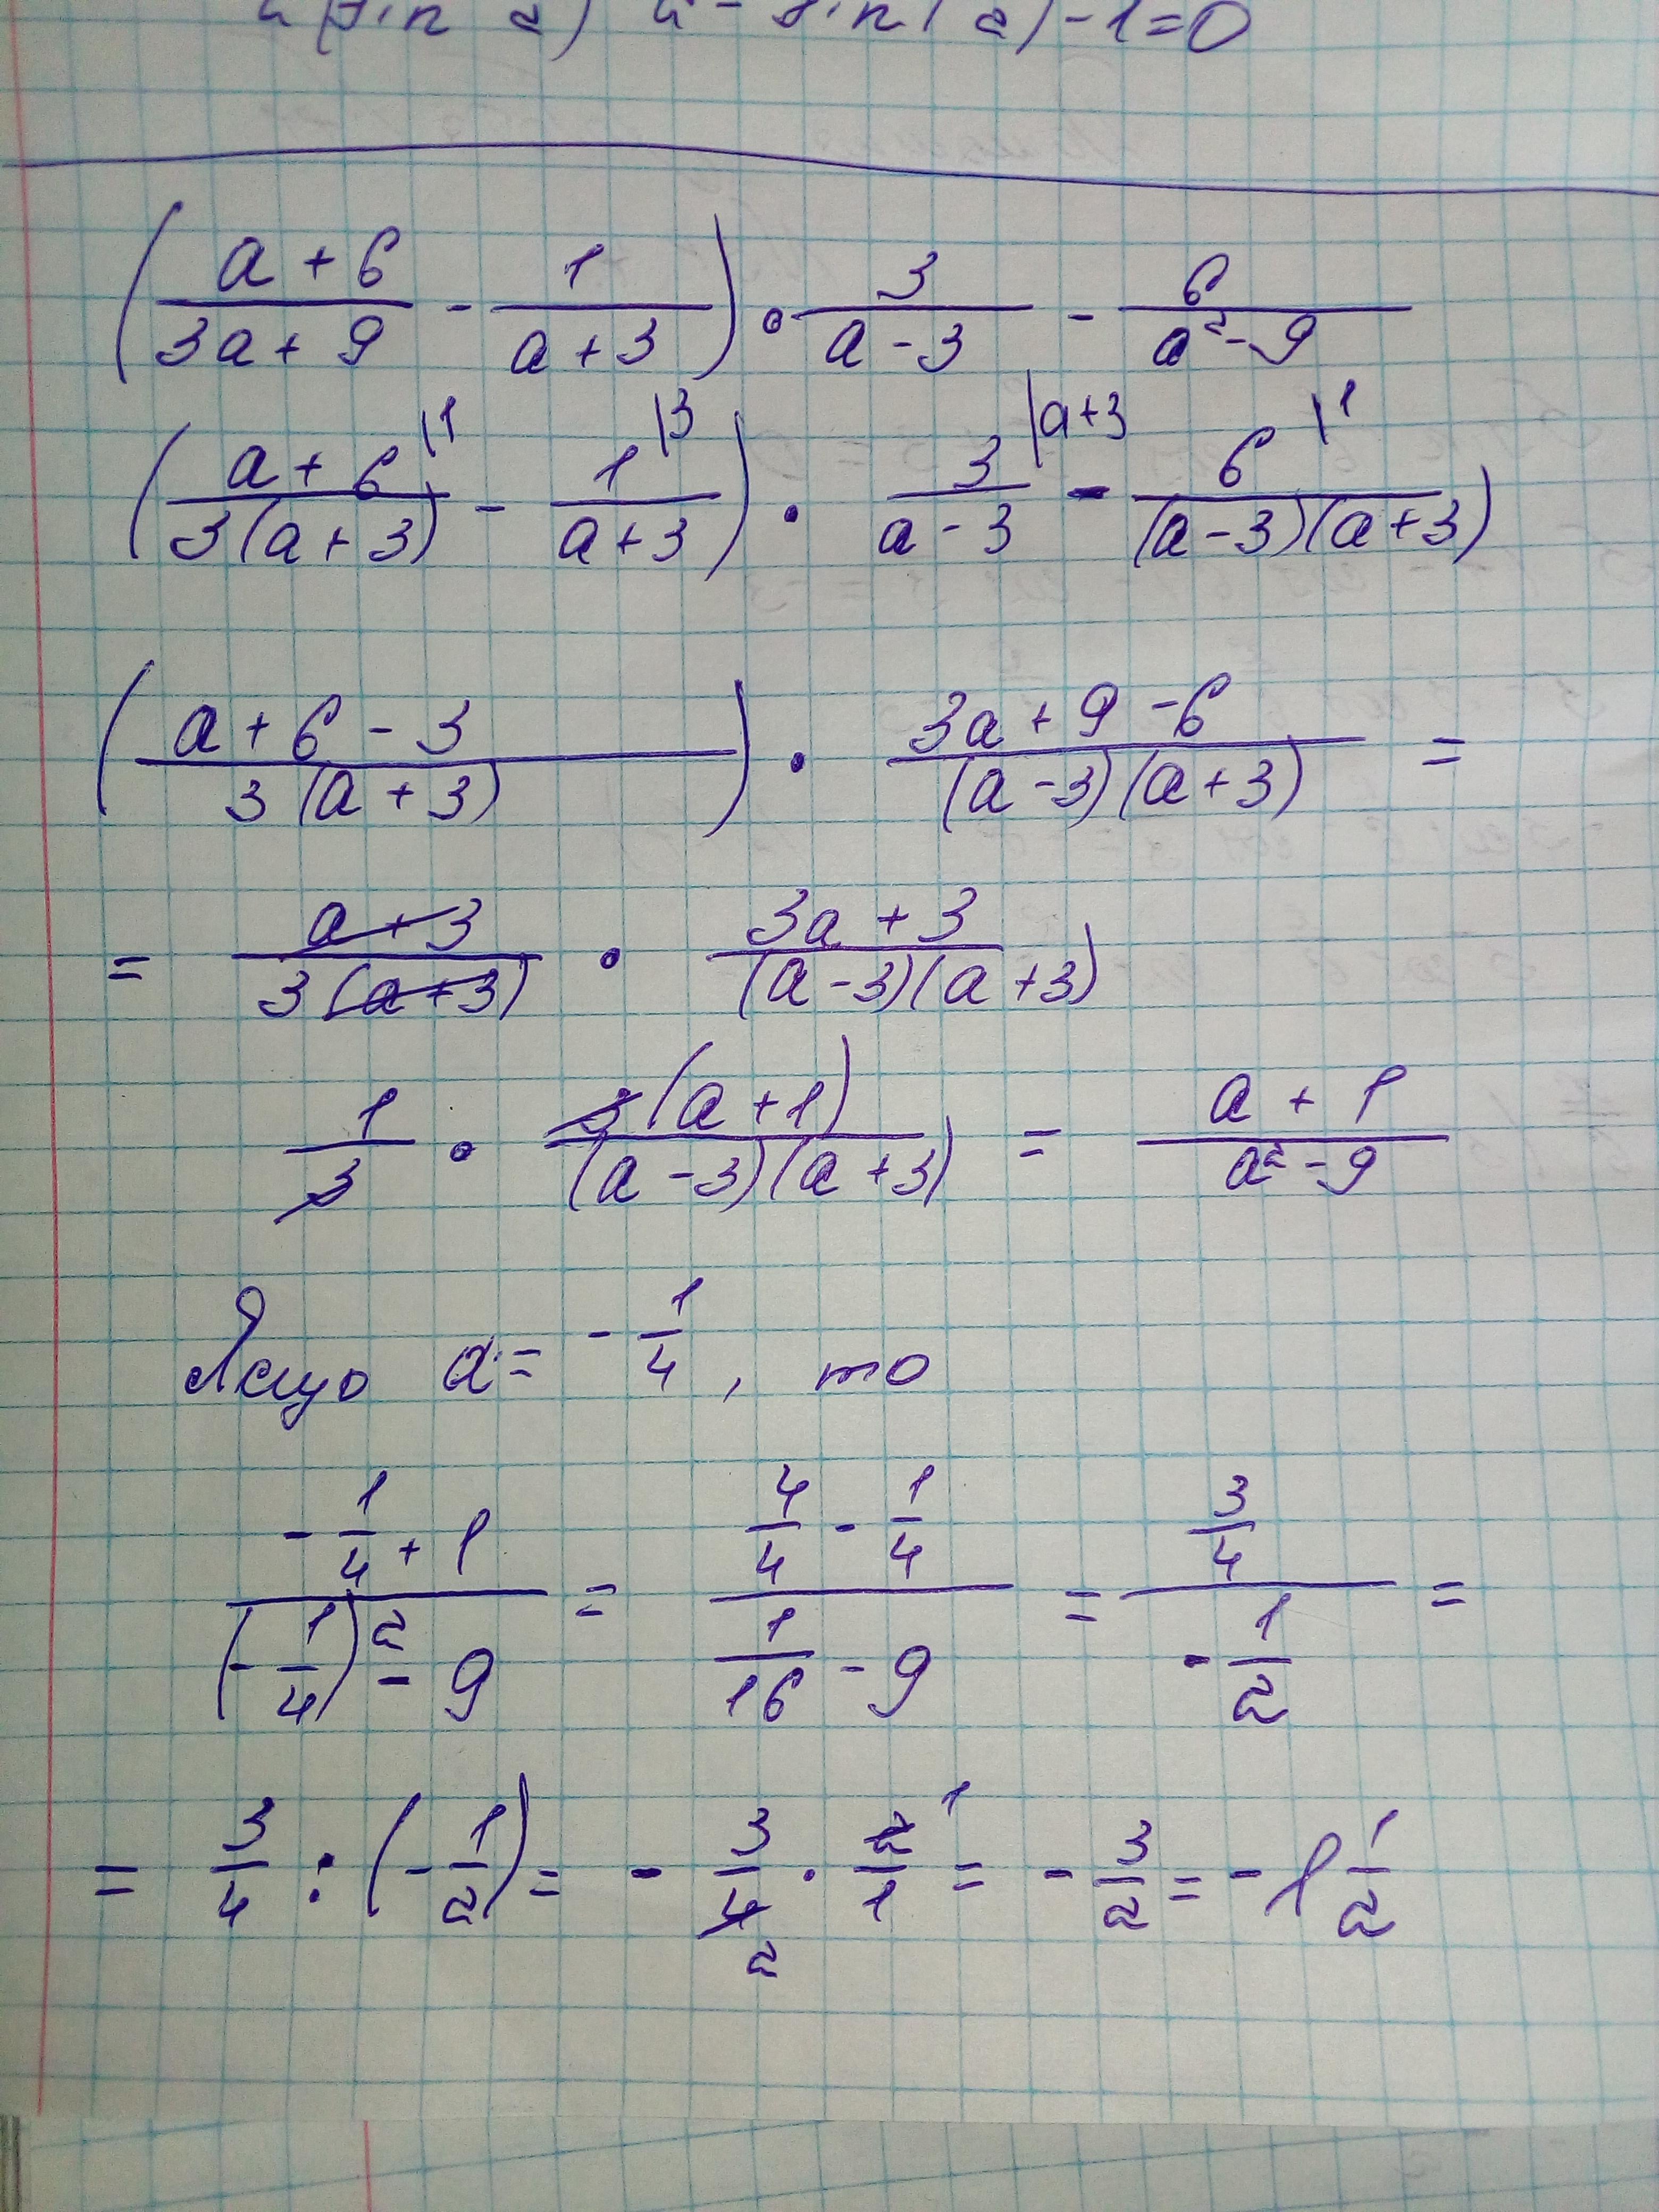 - sin( 2) - 1 = 0
( (a + 6)/(3a + 9) - 1/(a + 3) ) · 3/(a - 3) - 6/(a² - 9)
( (a + 6)/(3(a + 3)) |1 - 1/(a + 3) |3 ) · 3/(a - 3) |a+3 - 6/((a - 3)(a + 3)) |1
( (a + 6 - 3)/(3(a + 3)) ) · (3a + 9 - 6)/((a - 3)(a + 3)) =
= (a + 3)/(3(a + 3)) · (3a + 3)/((a - 3)(a + 3))
1/3 · 3(a + 1)/((a - 3)(a + 3)) = (a + 1)/(a² - 9)
Якщо a = - 1/4, то
(- 1/4 + 1)/((- 1/4)² - 9) = (4/4 - 1/4)/(1/16 - 9) = (3/4)/(- 1/2) =
= 3/4 : (- 1/2) = - 3/4 2 · 2/1 1 = - 3/2 = - 1 1/2